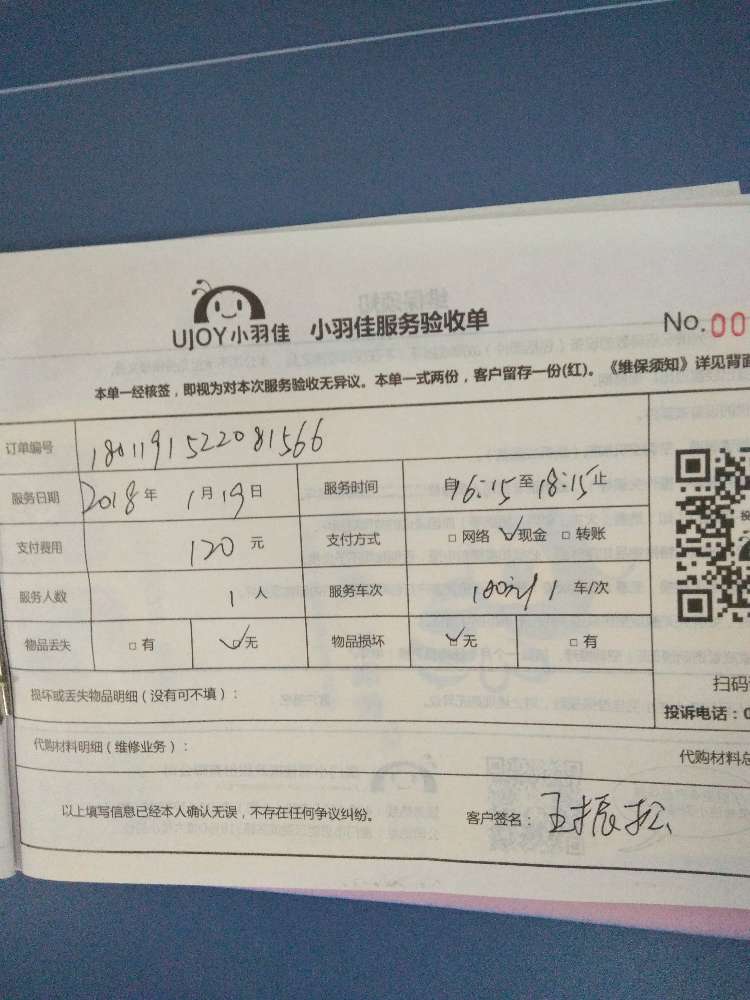 UJOY小羽佳 小羽佳服务验收单 No.00
本单一经核签，即视为对本次服务验收无异议。本单一式两份，客户留存一份(红)。《维保须知》详见背面
订单编号 1801191522081566
服务日期 2018年 1月19日 服务时间 自16:15至18:15止
支付费用 120元 支付方式 □网络 ☑现金 □转账
服务人数 1人 服务车次 1车/次
物品丢失 □有 ☑无 物品损坏 ☑无 □有
损坏或丢失物品明细（没有可不填）：
扫码
投诉电话：0
代购材料明细（维修业务）：
代购材料总
以上填写信息已经本人确认无误，不存在任何争议纠纷。 客户签名：王振松